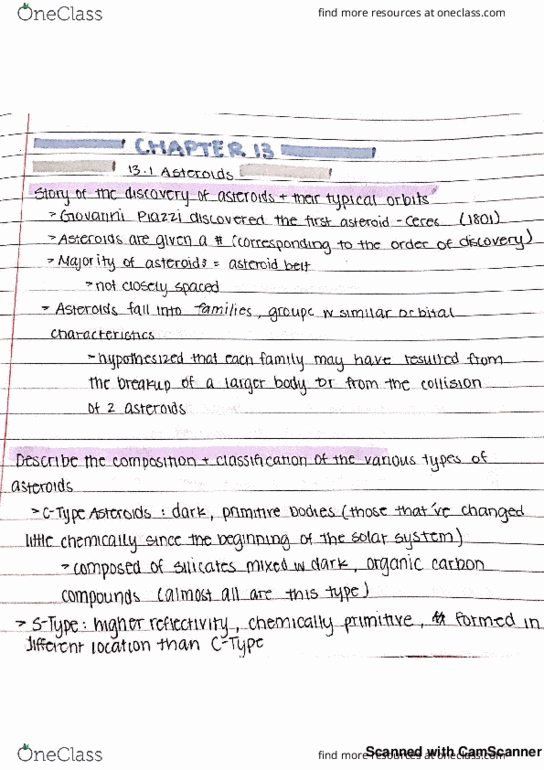 OneClass
find more resources at oneclass.com
CHAPTER 13
13.1 Asteroids
Story of the discovery of asteroids + their typical orbits
> Giovanni Piazzi discovered the first asteroid - Ceres (1801)
> Asteroids are given a # (corresponding to the order of discovery)
> Majority of asteroids = asteroid belt
> not closely spaced
> Asteroids fall into families, groups w similar orbital
characteristics
> hypothesized that each family may have resulted from
the breakup of a larger body or from the collision
of 2 asteroids
Describe the composition + classification of the various types of
asteroids
> C-Type Asteroids : dark, primitive bodies (those that've changed
little chemically since the beginning of the solar system)
> composed of silicates mixed w dark, organic carbon
compounds (almost all are this type)
> S-Type : higher reflectivity, chemically primitive, formed in
different location than C-Type
OneClass
find more resources at oneclass.com
Scanned with CamScanner